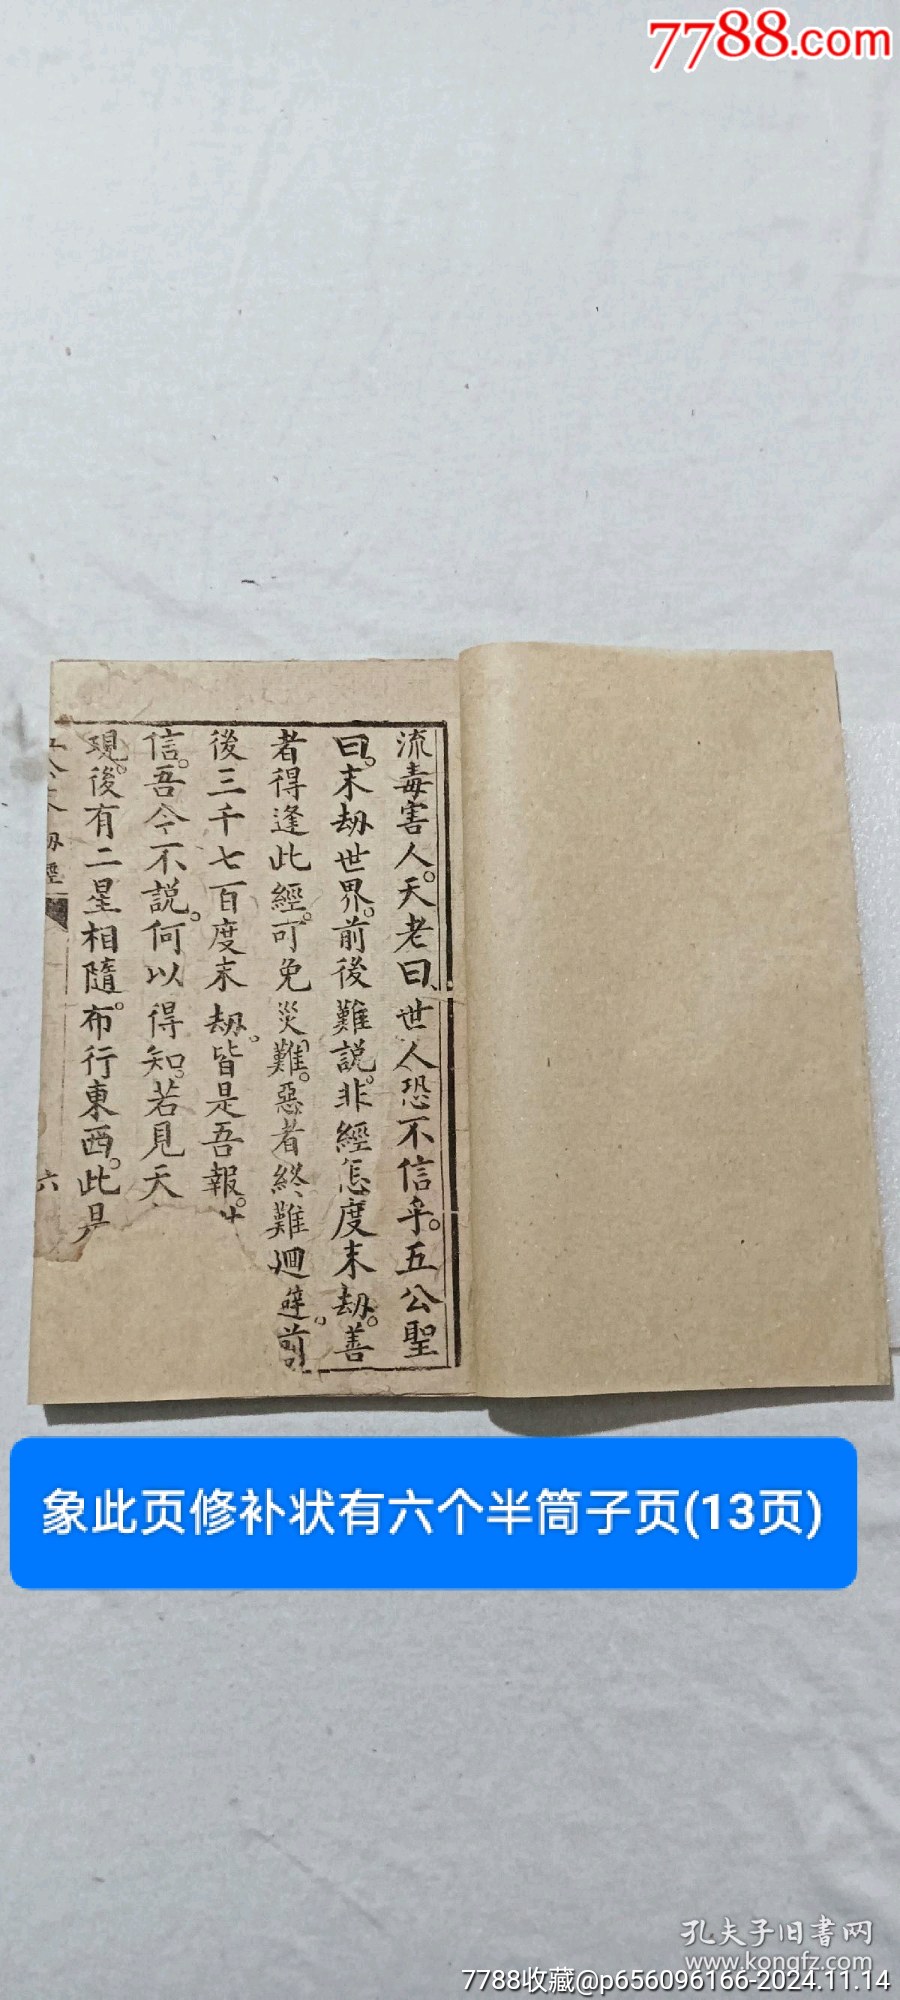 7788.com
流毒害人。天老曰、世人恐不信乎。五公聖
曰。末劫世界。前後難說。非經怎度末劫。善
者得逢此經。可免災難。惡者終難迴避。前
後三千七百度末劫。皆是吾報。
信。吾今不說。何以得知。若見天
現。後有二星相隨。布行東西。此是
劫經
六
象此页修补状有六个半筒子页(13页)
孔夫子旧书网
www.kongfz.com
7788收藏@p656096166-2024.11.14